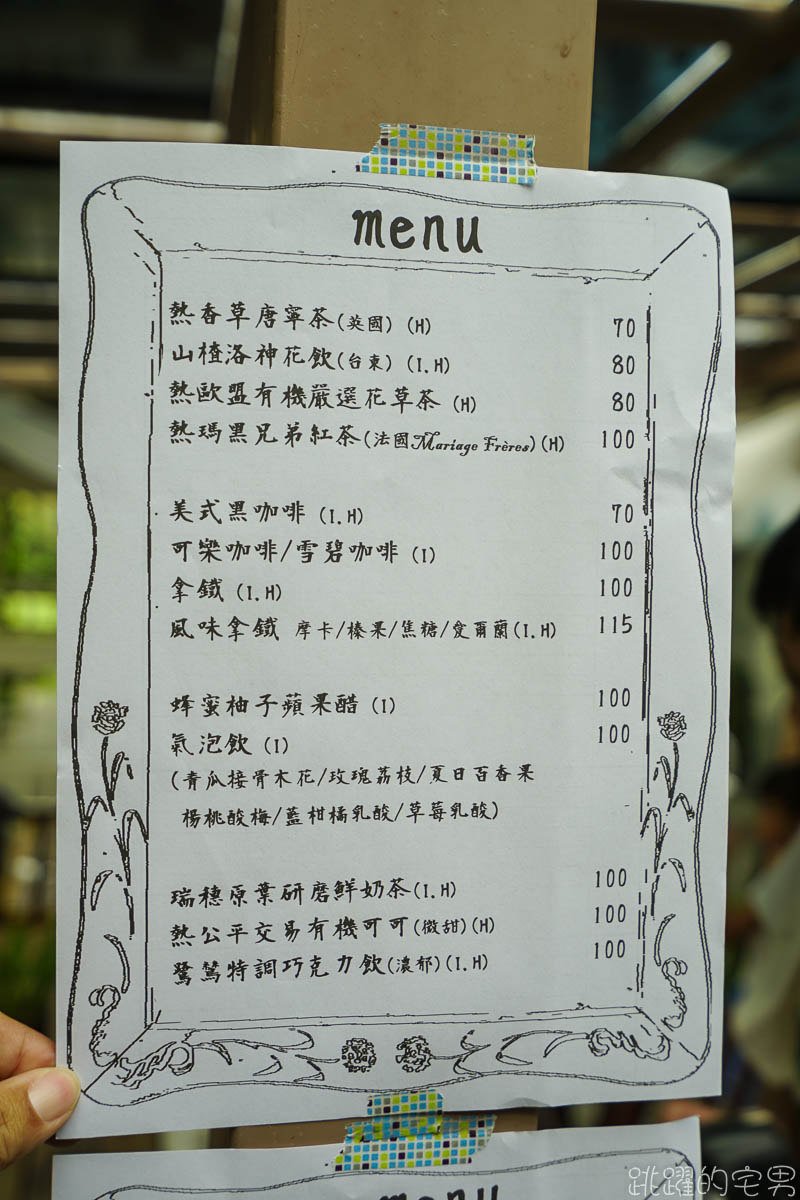 menu
熱香草唐寧茶(英國) (H) 70
山楂洛神花飲(台東) (I.H) 80
熱歐盟有機嚴選花草茶 (H) 80
熱瑪黑兄弟紅茶(法國Mariage Frères)(H) 100
美式黑咖啡 (I.H) 70
可樂咖啡/雪碧咖啡 (I) 100
拿鐵 (I.H) 100
風味拿鐵 摩卡/榛果/焦糖/愛爾蘭(I.H) 115
蜂蜜柚子蘋果醋 (I) 100
氣泡飲 (I) 100
(青瓜接骨木花/玫瑰荔枝/夏日百香果
楊桃酸梅/藍柑橘乳酸/草莓乳酸)
瑞穗原葉研磨鮮奶茶(I.H) 100
熱公平交易有機可可(微甜)(H) 100
鷺鶿特調巧克力飲(濃郁)(I.H) 100
menu
跳躍的宅男